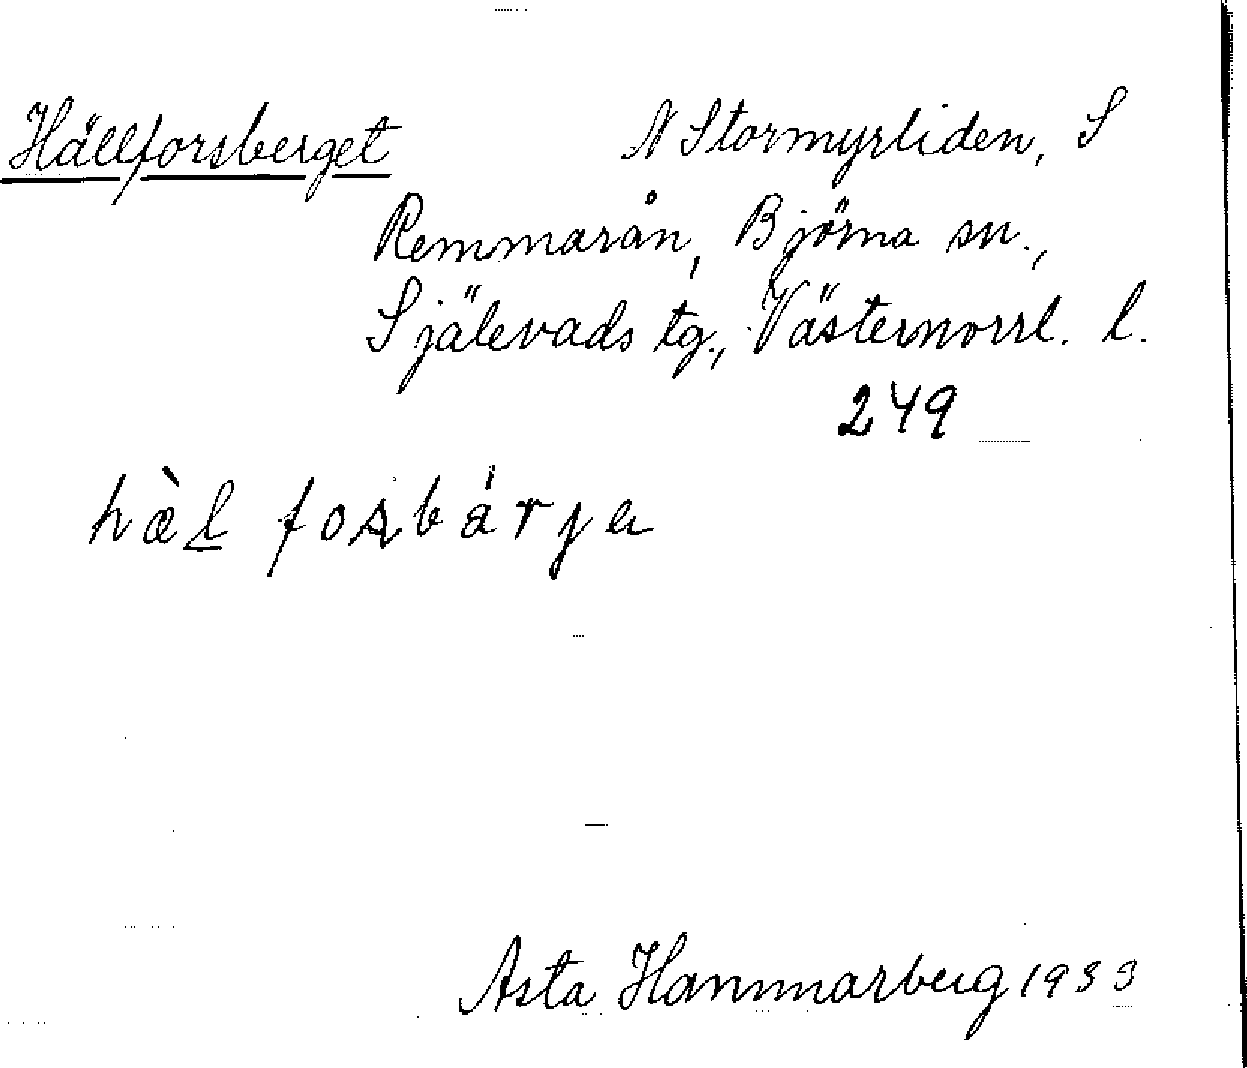 Hällforsberget N Stormyrliden, S
Remmarån, Björna sn.,
Själevads tg., Västernorrl. l.
249
hæ̀l fosbárja
Asta Hammarberg 1933